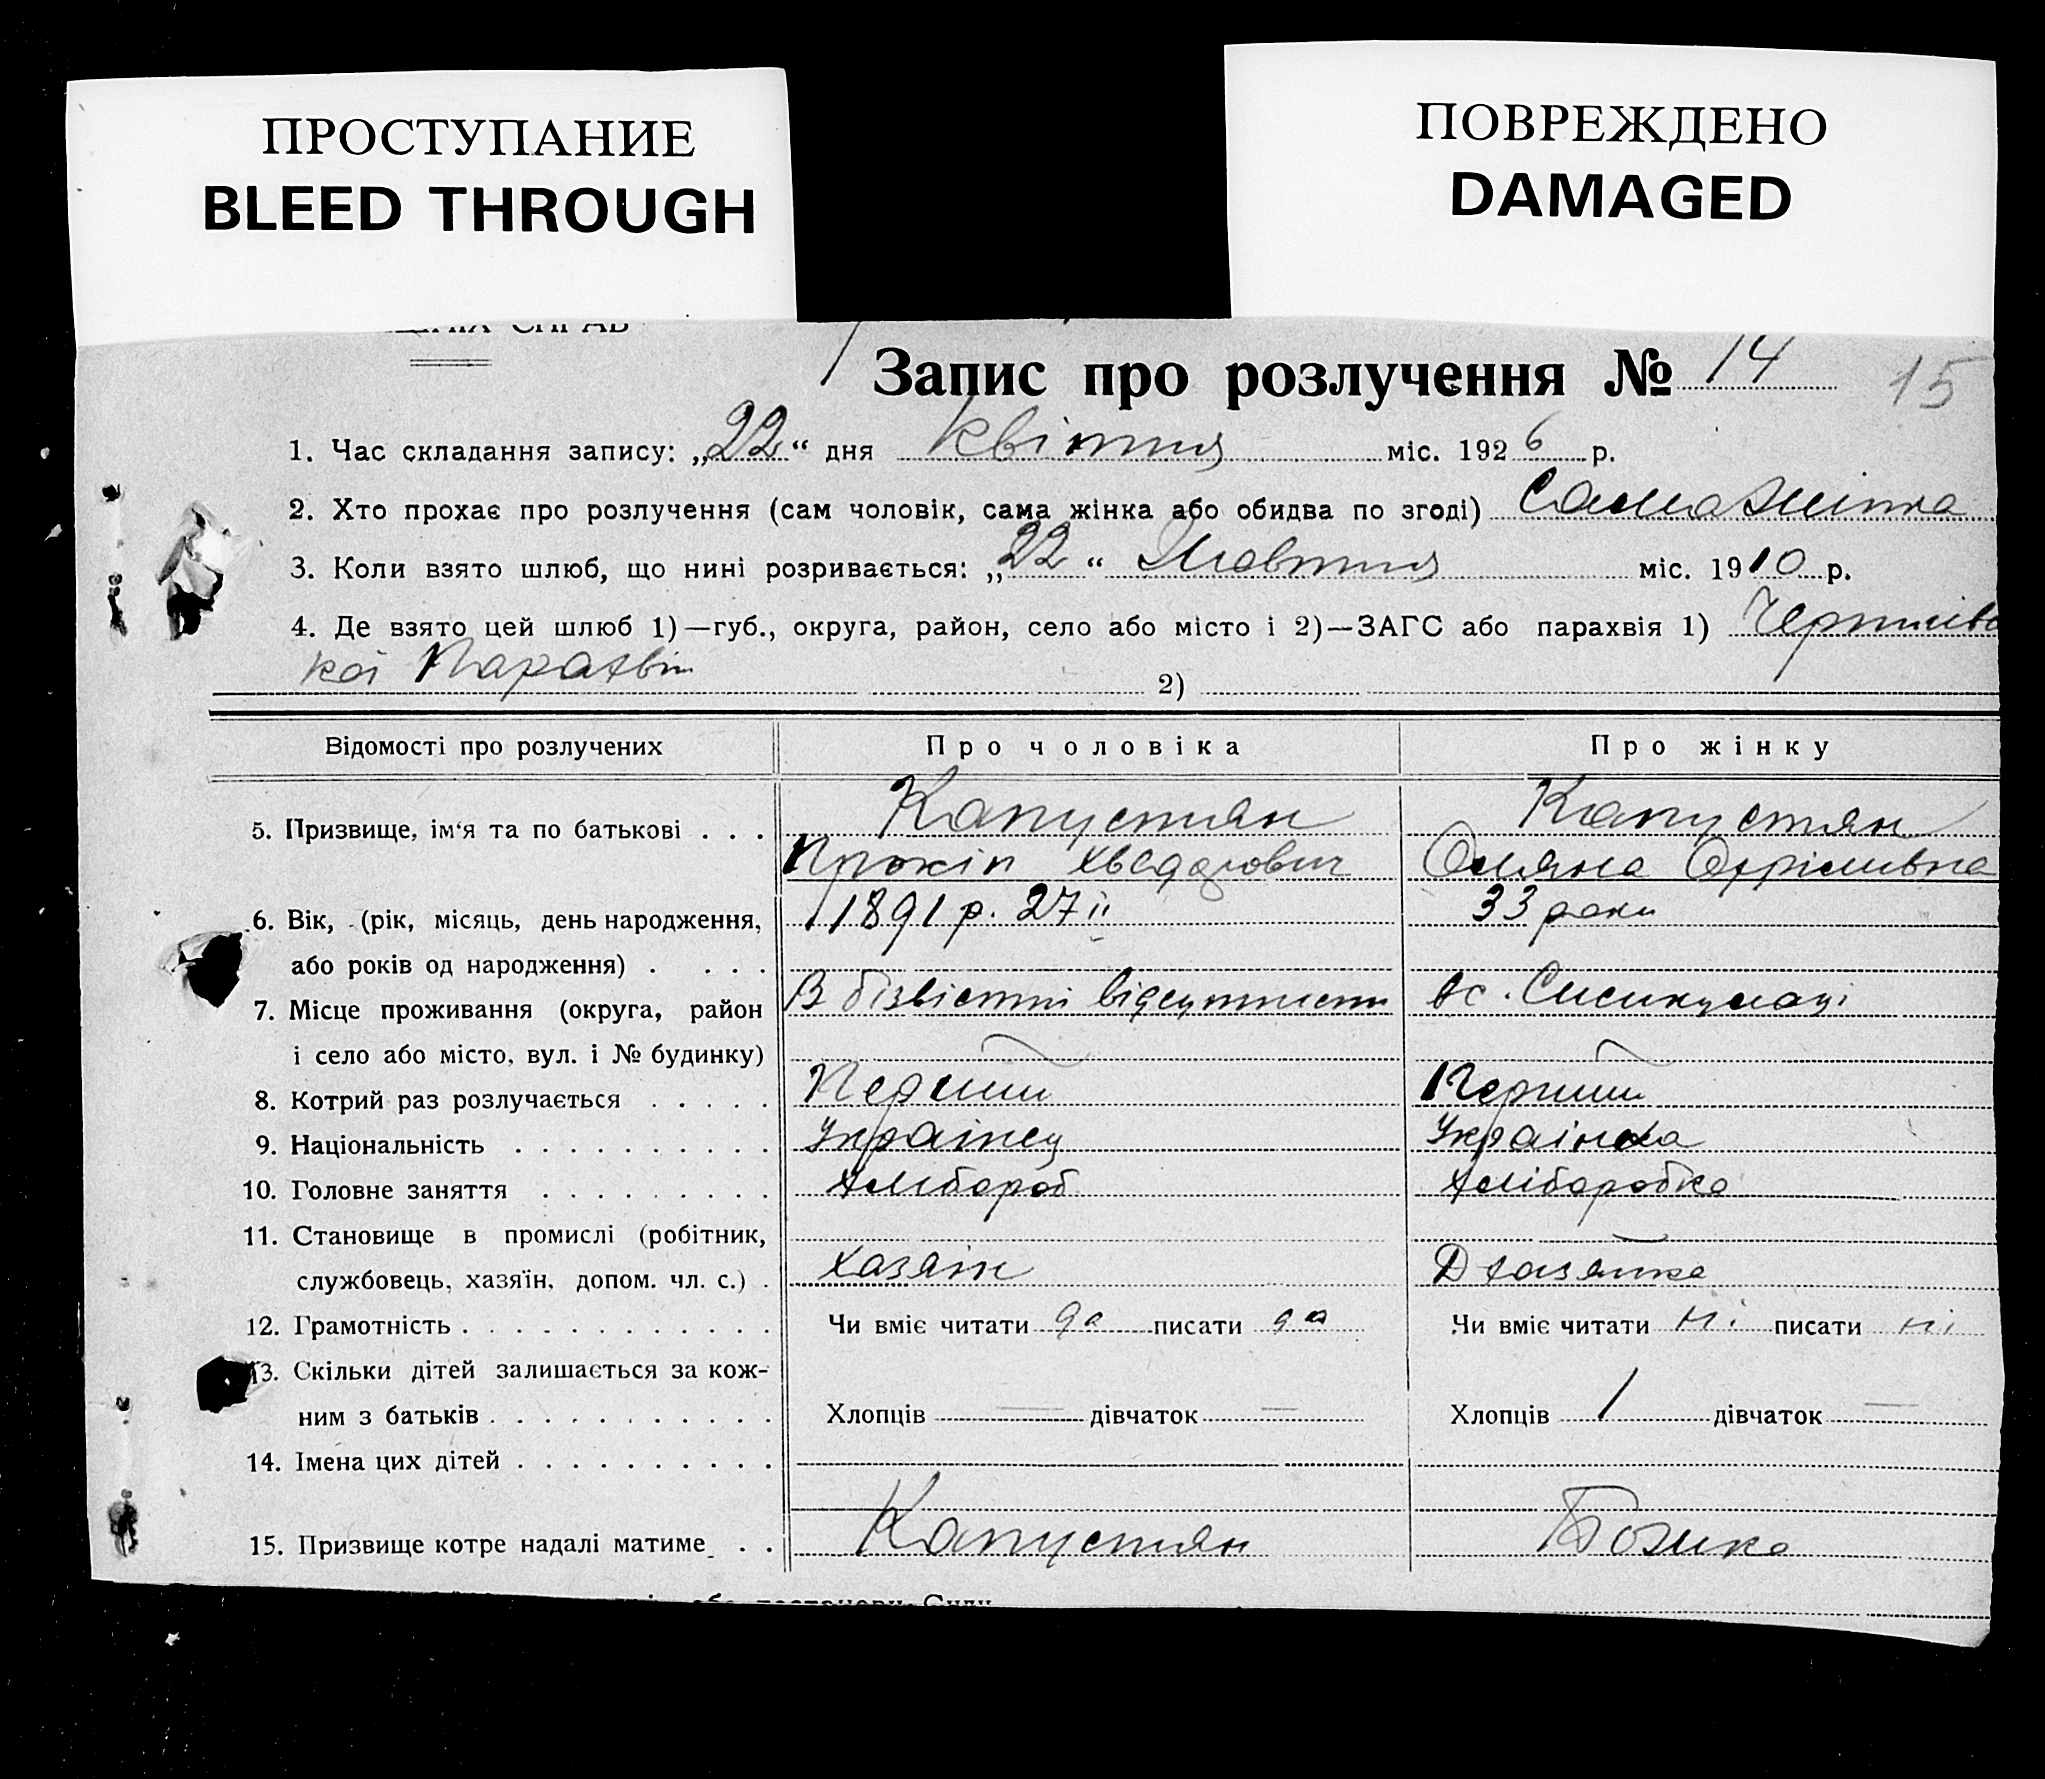 ПРОСТУПАНИЕ
BLEED THROUGH
ПОВРЕЖДЕНО
DAMAGED
Запис про розлучення № 14
15
1. Час складання запису: „22“ дня Квітня міс. 1926 р.
2. Хто прохає про розлучення (сам чоловік, сама жінка або обидва по згоді) Сама жінка
3. Коли взято шлюб, що нині розривається: „22“ Жовтня міс. 1910 р.
4. Де взято цей шлюб 1)—губ., округа, район, село або місто і 2)—ЗАГС або парахвія 1)
кої Парахвії 2)
Відомості про розлучених Про чоловіка Про жінку
5. Призвище, ім‘я та по батькові . . . Капустян Капустян
Прокіп Хведорович Оляна Охрімивна
6. Вік, (рік, місяць, день народження, 1891 р. 27 33 роки
або років од народження) . . . .
7. Місце проживання (округа, район В бізвістні відсутности в с.
і село або місто, вул. і № будинку)
8. Котрий раз розлучається . . . . . Перший Перший
9. Національність . . . . . . . . . . Українец Українка
10. Головне заняття . . . . . . . . . Хлібороб Хліборобка
11. Становище в промислі (робітник,
службовець, хазяїн, допом. чл. с.) . Хазяїн Хазяйка
12. Грамотність . . . . . . . . . . . . Чи вміє читати да писати да Чи вміє читати ні писати ні
13. Скільки дітей залишається за кож-
ним з батьків . . . . . . . . . . . Хлопців — дівчаток — Хлопців 1 дівчаток —
14. Імена цих дітей . . . . . . . . . .
15. Призвище котре надалі матиме . . Капустян Божко